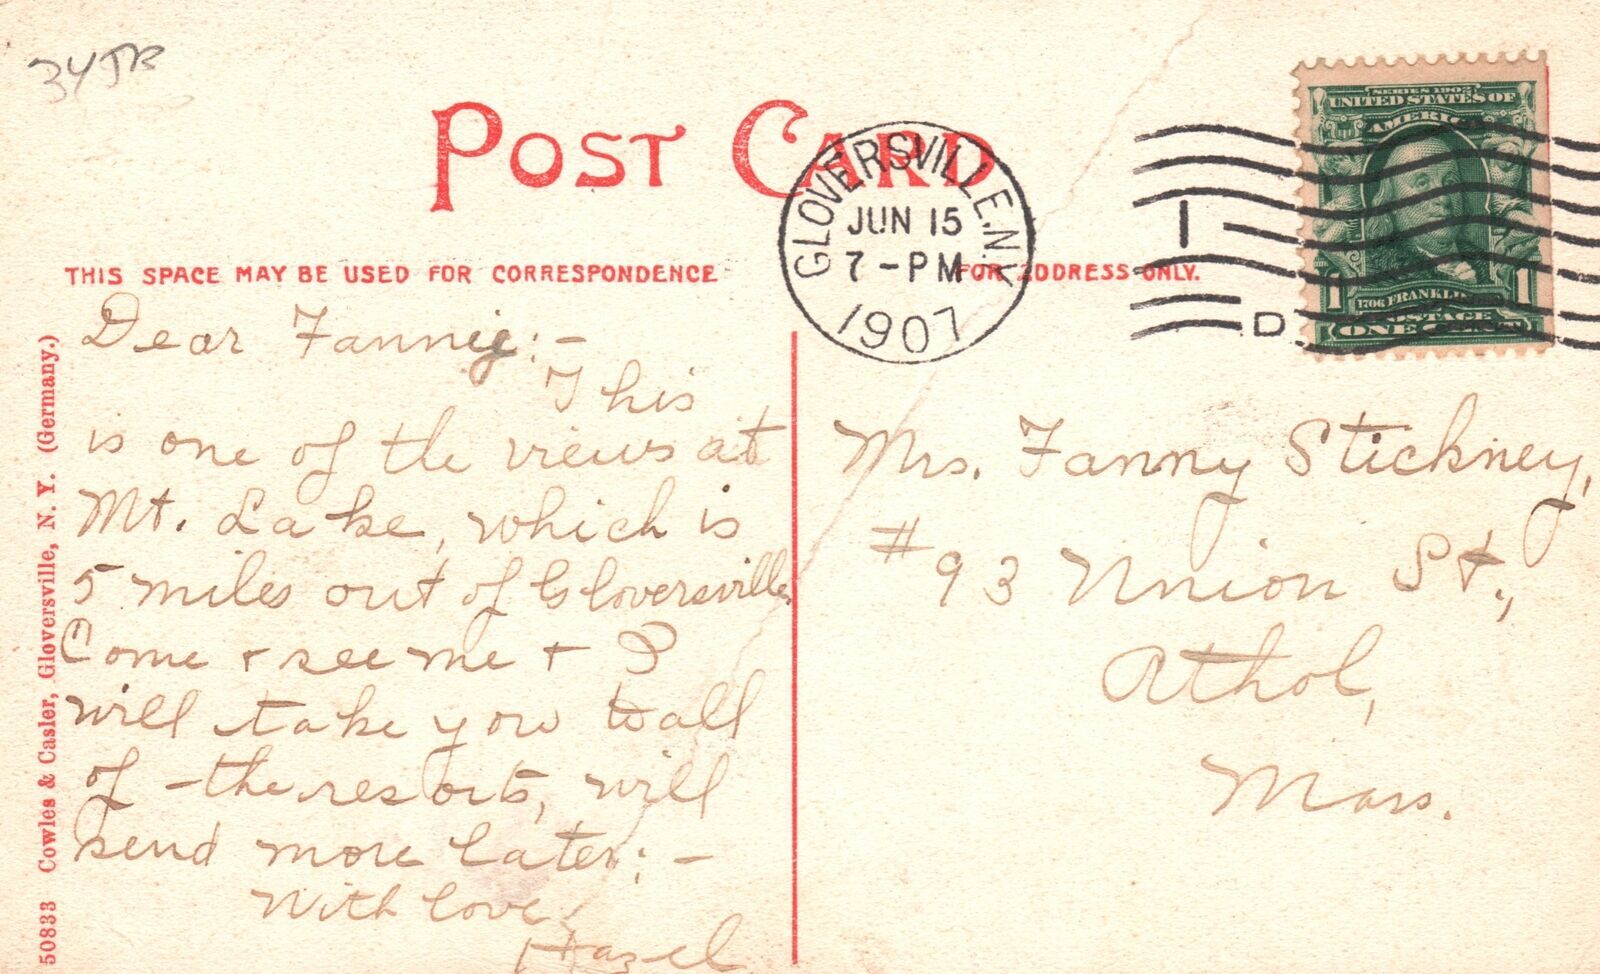 34JB
POST CARD
GLOVERSVILLE. N.Y.
JUN 15
7 - PM
1907
1
D
SERIES 1902
UNITED STATES OF
AMERICA
1 1706 FRANKLIN 1
POSTAGE
ONE CENT
THIS SPACE MAY BE USED FOR CORRESPONDENCE
FOR ADDRESS ONLY.
Dear Fannie:-
This
is one of the views at
Mt. Lake, which is
5 miles out of Gloversville.
Come + see me + I
will take you to all
of the resorts, will
send more later:-
With love,
Hazel
Mrs. Fanny Stickney,
#93 Union St.,
Athol,
Mass.
50833 Cowles & Casler, Gloversville, N. Y. (Germany.)